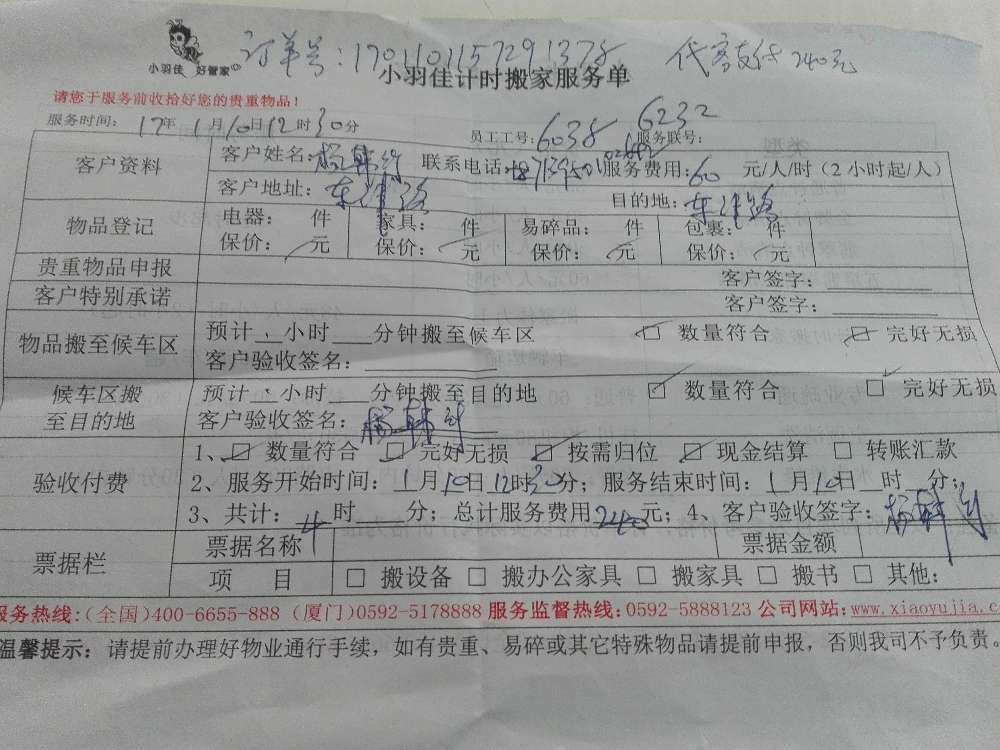 订单号:1701101157291378 代客支付240元
小羽佳 好管家
小羽佳计时搬家服务单
请您于服务前收拾好您的贵重物品!
服务时间: 17年1月10日12时30分 员工工号: 6038 6232 服务联号:
客户资料 客户姓名: 联系电话: 服务费用:60元/人/时(2小时起/人)
客户地址: 目的地:
物品登记 电器: 件 家具: 件 易碎品: 件 包裹: 件
保价: 元 保价: 元 保价: 元 保价: 元
贵重物品申报 客户签字:
客户特别承诺 客户签字:
物品搬至候车区 预计 小时 分钟搬至候车区 ☑ 数量符合 ☑ 完好无损
客户验收签名:
候车区搬至目的地 预计 小时 分钟搬至目的地 ☑ 数量符合 ☑ 完好无损
客户验收签名:
验收付费 1、☑ 数量符合 ☑ 完好无损 ☑ 按需归位 ☑ 现金结算 □ 转账汇款
2、服务开始时间:1月10日12时30分;服务结束时间:1月10日 时 分;
3、共计:4时 分;总计服务费用240元;4、客户验收签字:
票据栏 票据名称 票据金额
项 目 □ 搬设备 □ 搬办公家具 □ 搬家具 □ 搬书 □ 其他:
服务热线:(全国)400-6655-888 (厦门)0592-5178888 服务监督热线:0592-5888123 公司网站:www.xiaoyujia.c
温馨提示:请提前办理好物业通行手续,如有贵重、易碎或其它特殊物品请提前申报,否则我司不予负责。